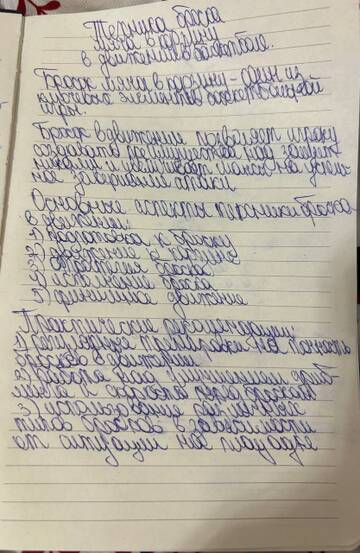 Техника броска
мяча в корзину
в движении в баскетболе.
Бросок мяча в корзину - один из
ключевых элементов баскетбольной
игры.
Бросок в движении позволяет игроку
создавать преимущество над защит-
никами и увеличивает шансы на успеш-
ное завершение атаки
Основные аспекты техники броска
в движении:
1) подготовка к броску
2) движение к корзине
3) броска
4) исполнение броска
5) финишное движение
Практические рекомендации:
1) регулярная тренировка на точность
бросков в движении
2) работа над
и скорости перед броском
3) использование различных
типов бросков в зависимости
от ситуации на площадке